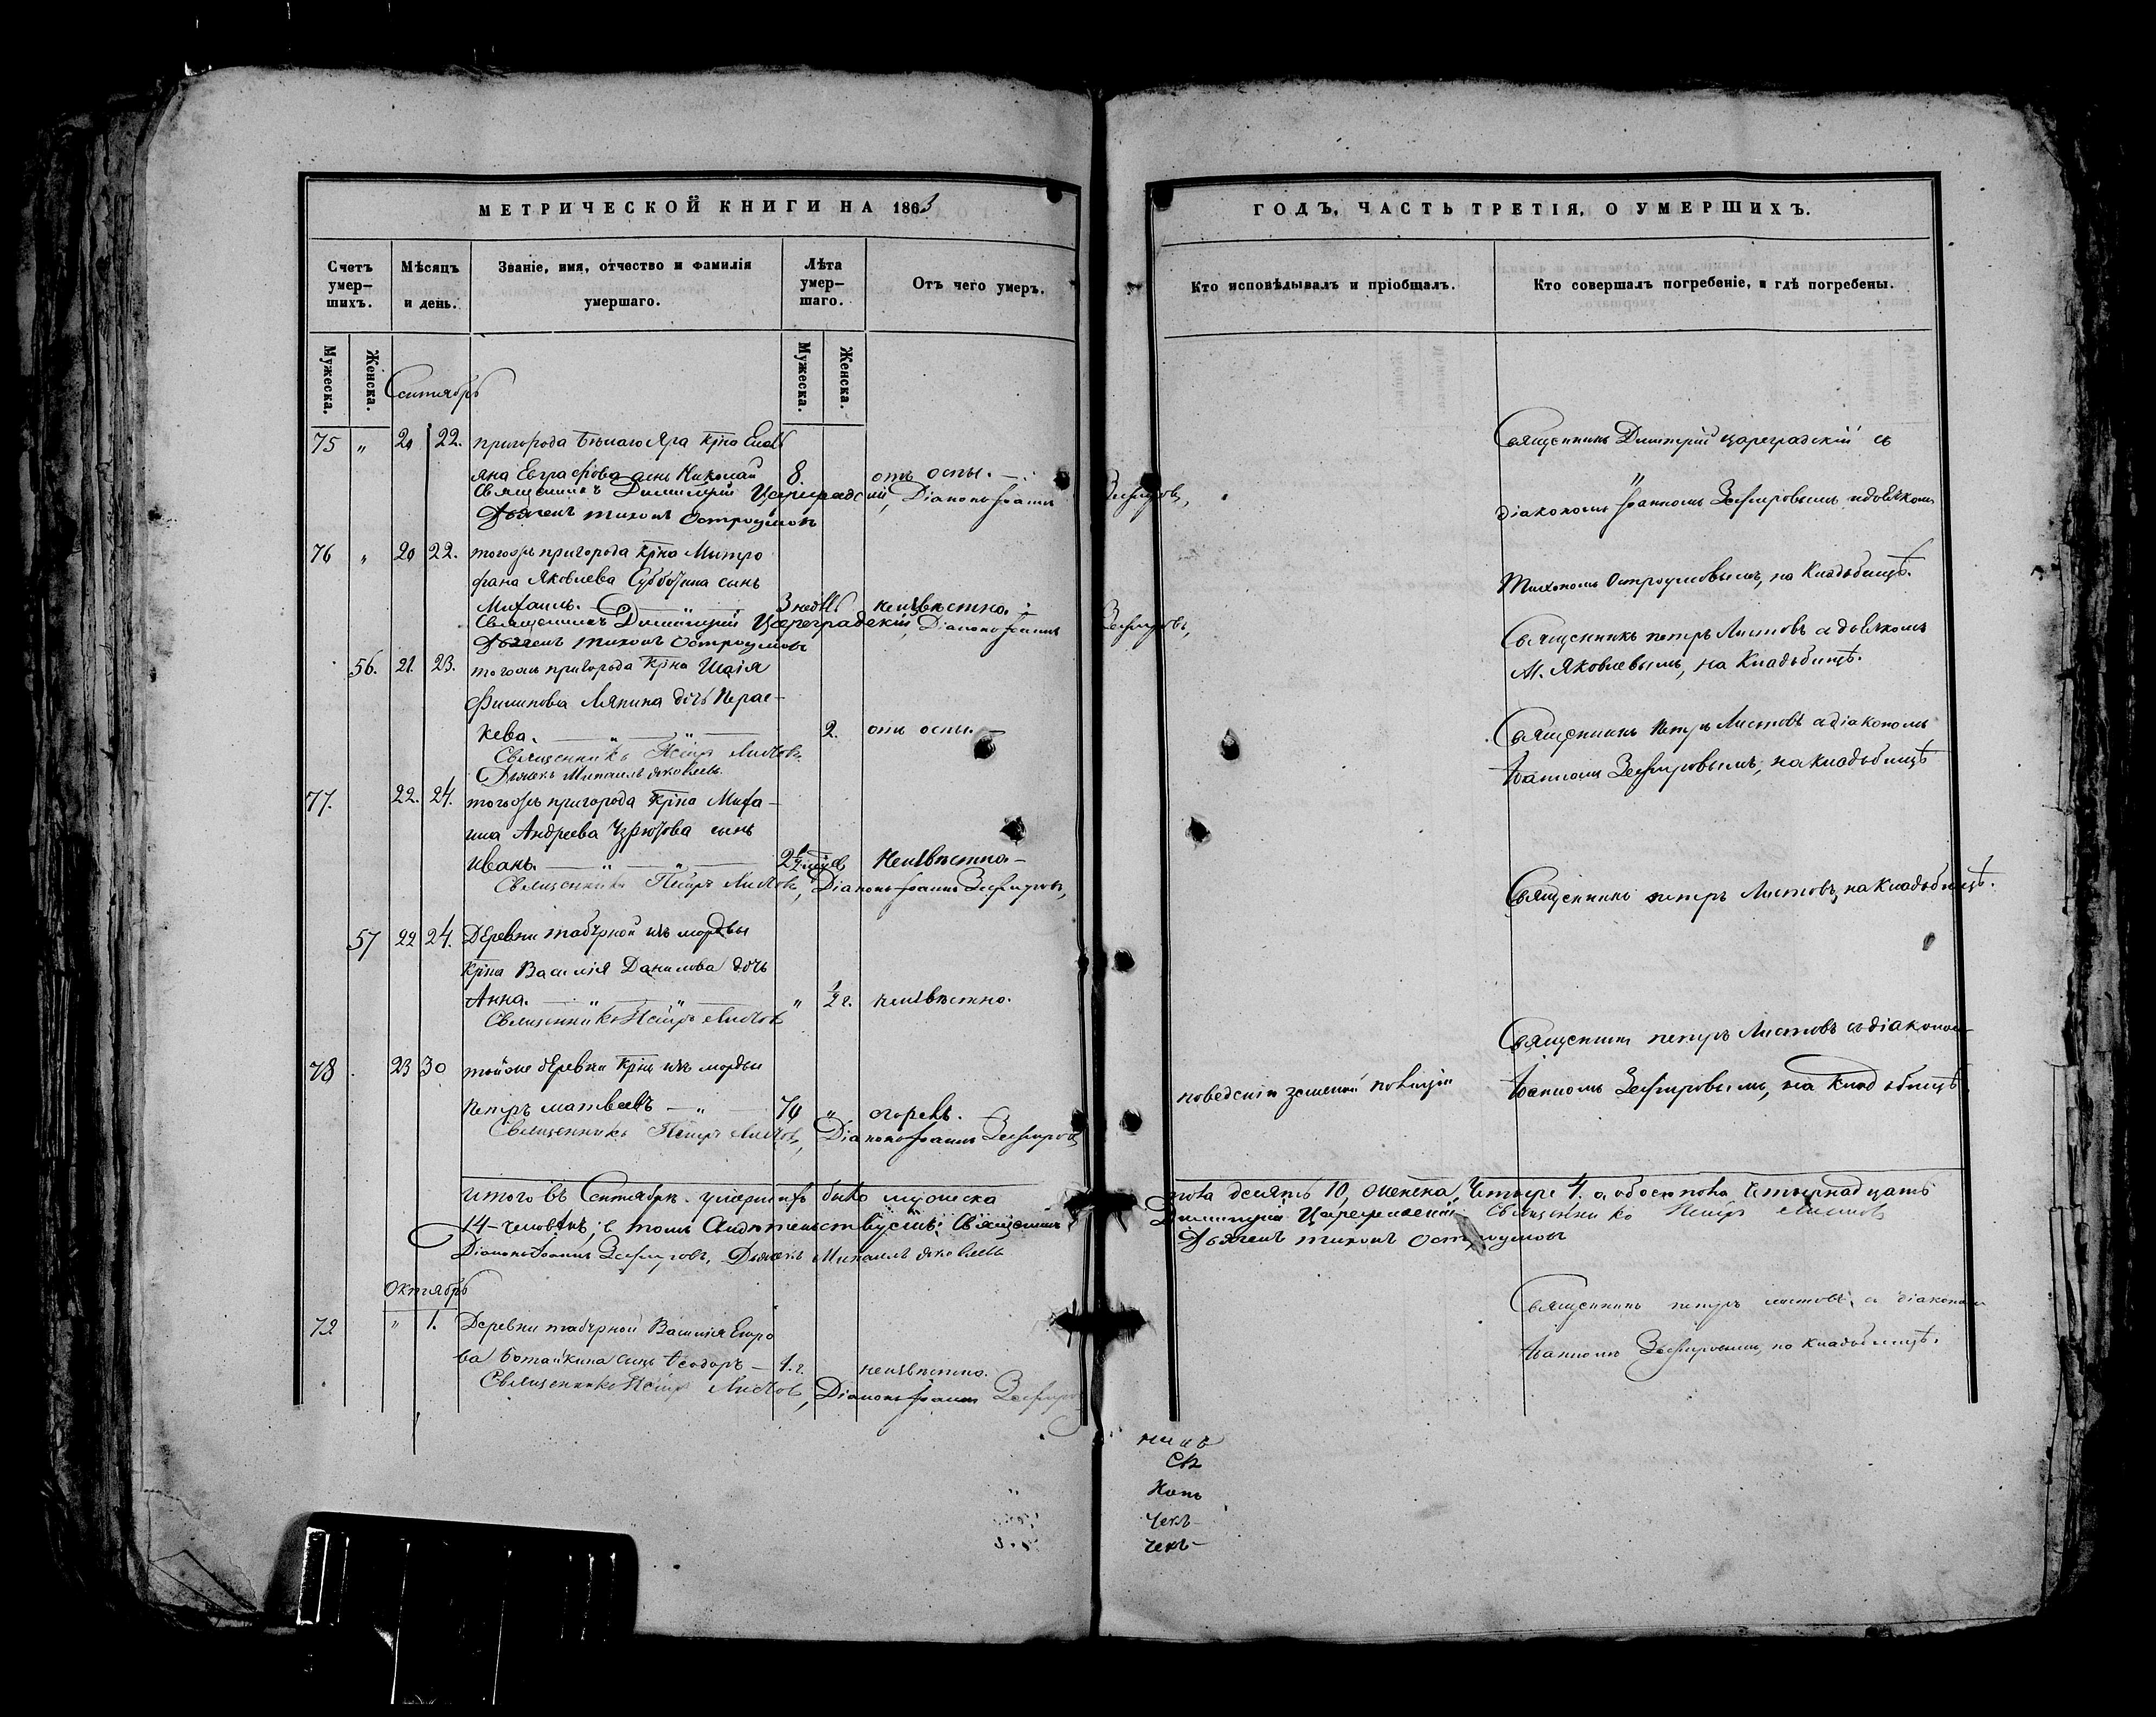 МЕТРИЧЕСКОЙ КНИГИ НА 1863
Счетъ умер-шихъ.
Мѣсяцъ и день.
Званіе, имя, отчество и фамилія умершаго.
Лѣта умер-шаго.
Отъ чего умеръ.
Мужеска.
Женска.
Мужеска.
Женска.
Сентябрь
75 „ 20 22. пригорода Бѣлаго Яра крна
яна Евграфова сынъ Николай 8. отъ оспы.
Священникъ Димитрій Цареградскій, Діаконъ Іоаннъ Зефировъ,
Дьячекъ Тихонъ Остроумовъ
76 „ 20 22. тогожъ пригорода крна Митро
фана Яковлева Субботина сынъ
Михаилъ. 3 недѣ неизвѣстно.
Священникъ Димитрій Цареградскій, Діаконъ Іоаннъ Зефировъ,
Дьячекъ Тихонъ Остроумовъ
56. 21. 23. тогожъ пригорода крна Исаія
Филипова Ляпина дочь Парас-
кева. 2. отъ оспы.
Священникъ Петръ Листовъ
Дьячекъ Михаилъ Яковлевъ.
77. 22. 24. тогожъ пригорода крна Миха-
ила Андреева сынъ
Иванъ. Неизвѣстно
Священникъ Петръ Листовъ, Діаконъ Іоаннъ Зефировъ,
57 22 24. Деревни табурной изъ мордвы
крна Василія Данилова дочь
Анна. „ ½ г. неизвѣстно.
Священникъ Петръ Листовъ
78 23 30 тойже деревни крнъ изъ мордвы
Петръ Матвеевъ 70 „ сгорѣлъ.
Священникъ Петръ Листовъ, Діаконъ Іоаннъ Зефировъ
итого въ Сентябрѣ умершихъ было мужеска
14-человѣкъ; в томъ свидѣтельствуемъ: Священникъ
Діаконъ Іоаннъ Зефировъ, Дьячекъ Михаилъ Яковлевъ
Октябрь
79 „ 1. Деревни табурной Василія Егоро
ва Ботайкина сынъ Ѳеодоръ 1. г. неизвѣстно.
Священникъ Петръ Листовъ, Діаконъ Іоаннъ Зефиро
ГОДЪ, ЧАСТЬ ТРЕТІЯ, О УМЕРШИХЪ.
Кто исповѣдывалъ и пріобщалъ.
Кто совершалъ погребеніе, и гдѣ погребены.
Священникъ Димитрій Цареградскій съ
діакономъ Іоанномъ Зефировымъ и дьячкомъ
Тихономъ Остроумовымъ, на Кладбищѣ.
Священникъ Петръ Листовъ с дьячкомъ
М. Яковлевымъ, на Кладьбищѣ.
Священникъ Петръ Листовъ с діакономъ
Іоанномъ Зефировымъ, на кладьбищѣ
Священникъ петръ Листовъ, на Кладьбищѣ.
Священникъ петръ Листовъ съ діакономъ
поведенію земской полиціи Іоанномъ Зефировымъ, на Кладьбищѣ.
пола десять 10, женска, Четыре 4. а обоего пола Четырнадцать
Димитрій Цареградскій Священникъ Петръ Листовъ
Дьячекъ Тихонъ Остроумовъ
Священникъ петръ листовъ, с діакономъ
Іоанномъ Зефировымъ, на Кладьбищѣ.
чекъ
чекъ